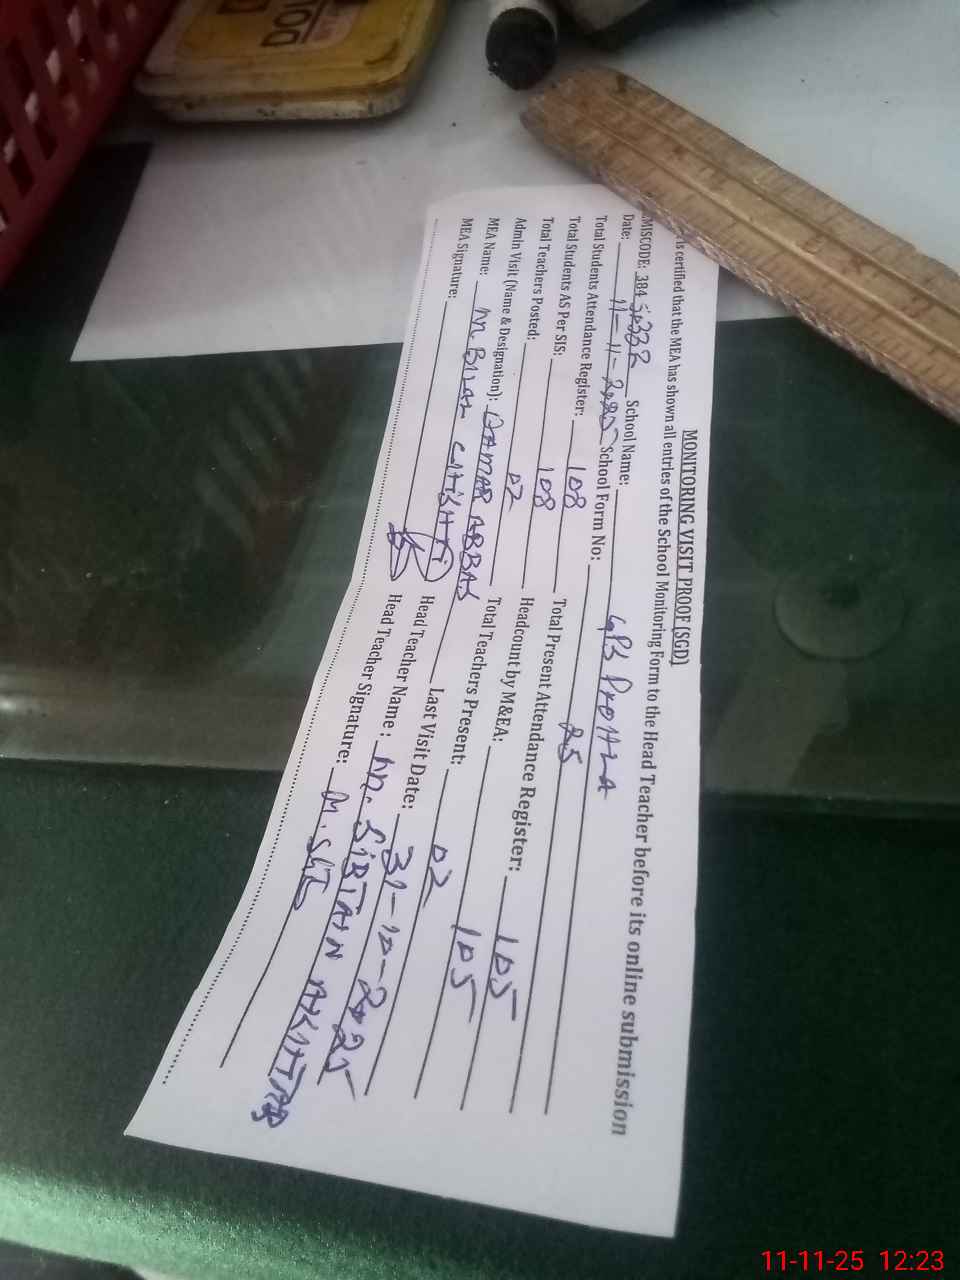 MONITORING VISIT PROOF (SGD)
is certified that the MEA has shown all entries of the School Monitoring Form to the Head Teacher before its online submission
MISCODE: 384 School Name: GPS
Date: 11-11-2025 School Form No: 25
Total Students Attendance Register: 108 Total Present Attendance Register: 105
Total Students AS Per SIS: 108 Headcount by M&EA: 105
Total Teachers Posted: 02 Total Teachers Present: 02
Admin Visit (Name & Designation): QAMAR ABBAS Last Visit Date: 31-10-2025
MEA Name: M. Bilal CHISHTI Head Teacher Name : M. SIBTAIN AKHTAR
MEA Signature: Head Teacher Signature:
11-11-25 12:23